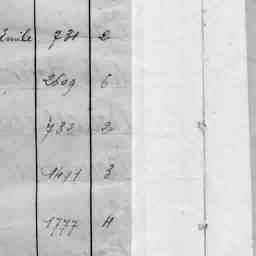 Emile 731 2
2609 6
733 2
1491 3
1777 4